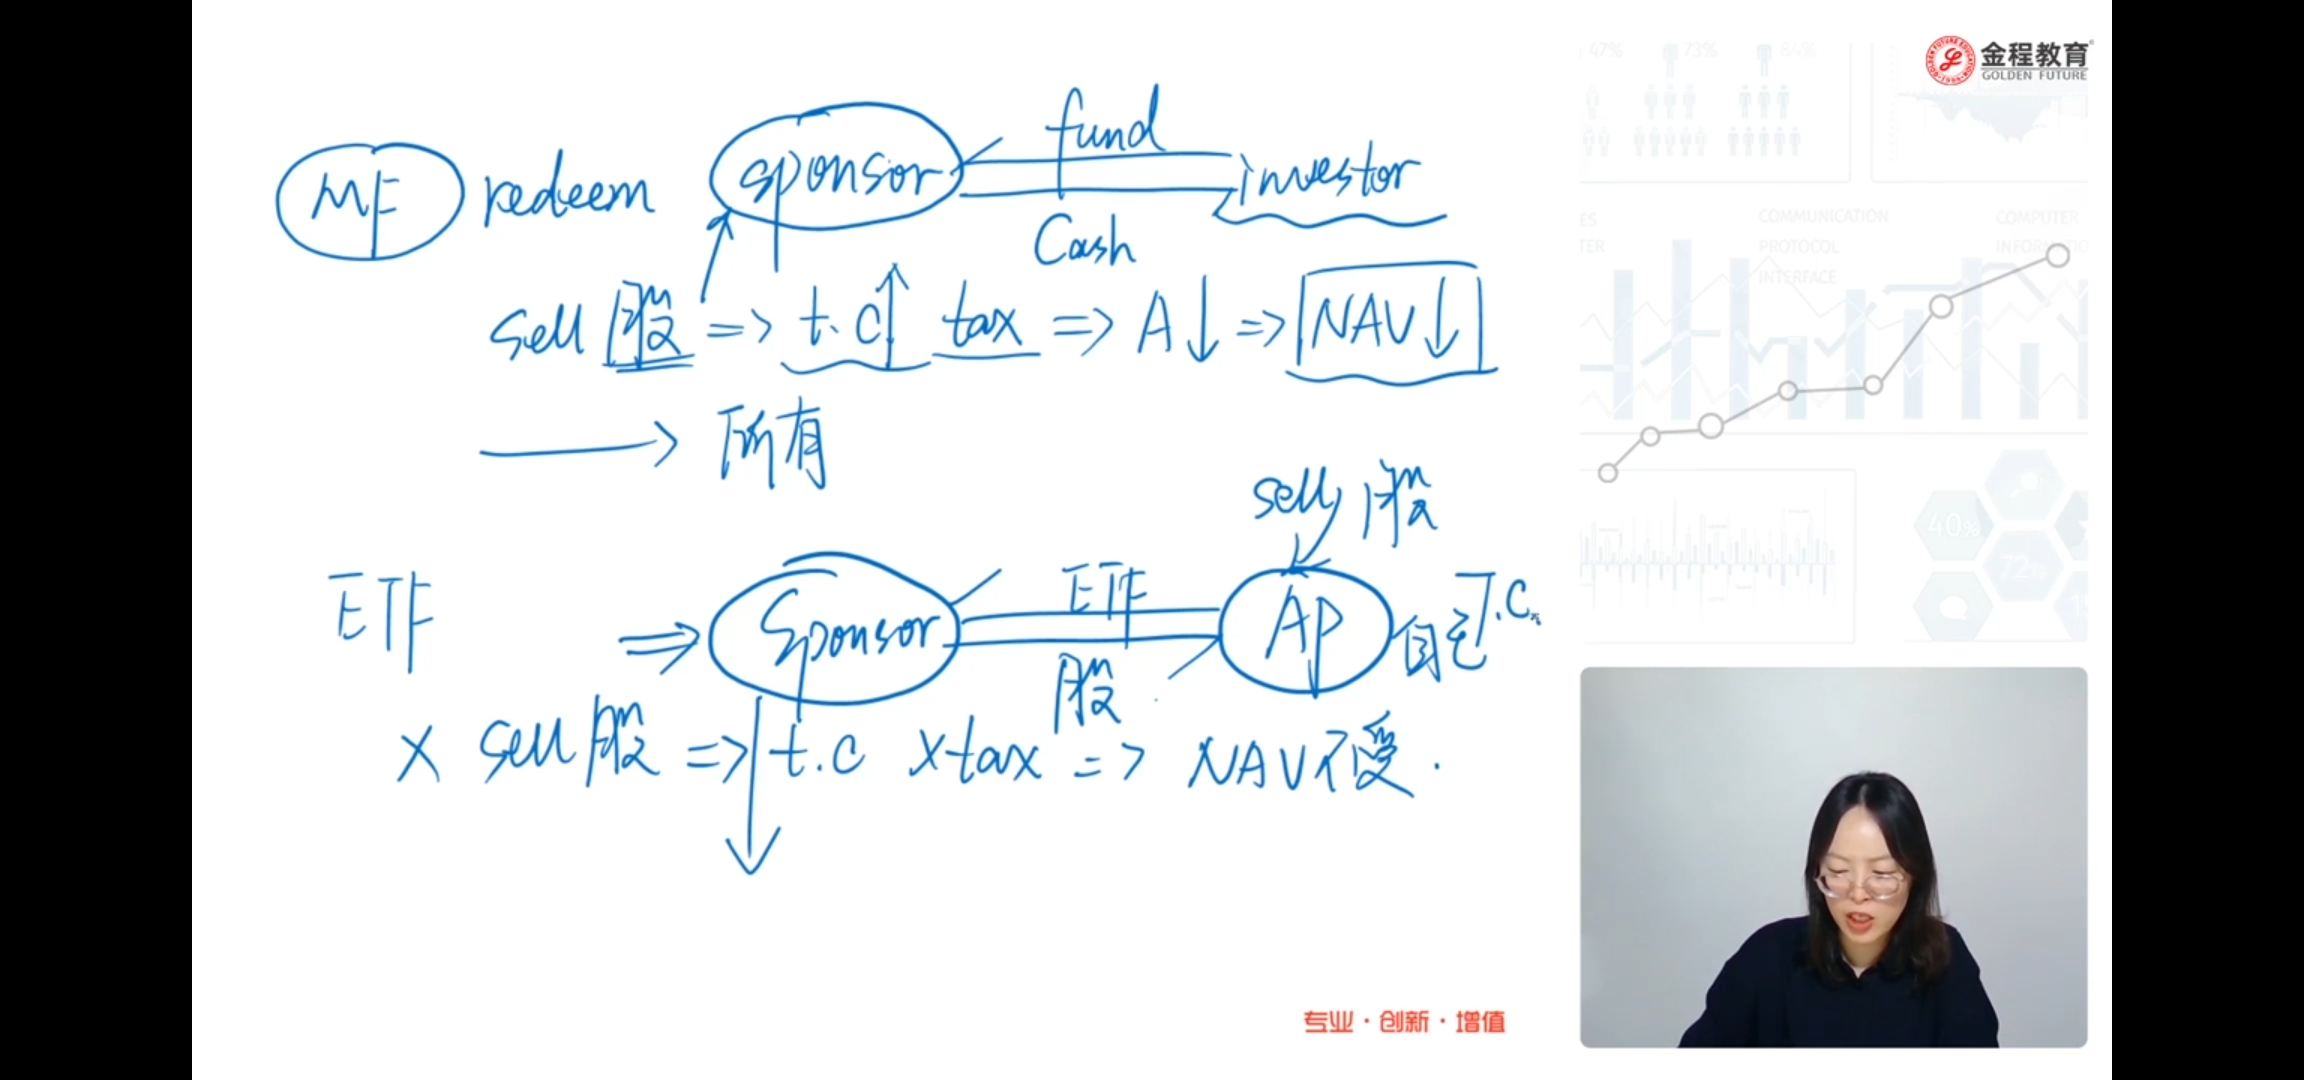 金程教育
GOLDEN FUTURE
47%
73%
64%
fund
MF redeem sponsor investor
Cash
COMMUNICATION
PROTOCOL
INTERFACE
COMPUTER
sell 股 => t.c↑ tax => A↓ => NAV↓
→ 所有
sell 股
40%
72%
ETF => Sponsor ETF AP 自己 T.C.
股
X sell 股 => t.c X tax => NAV不受.
专业·创新·增值